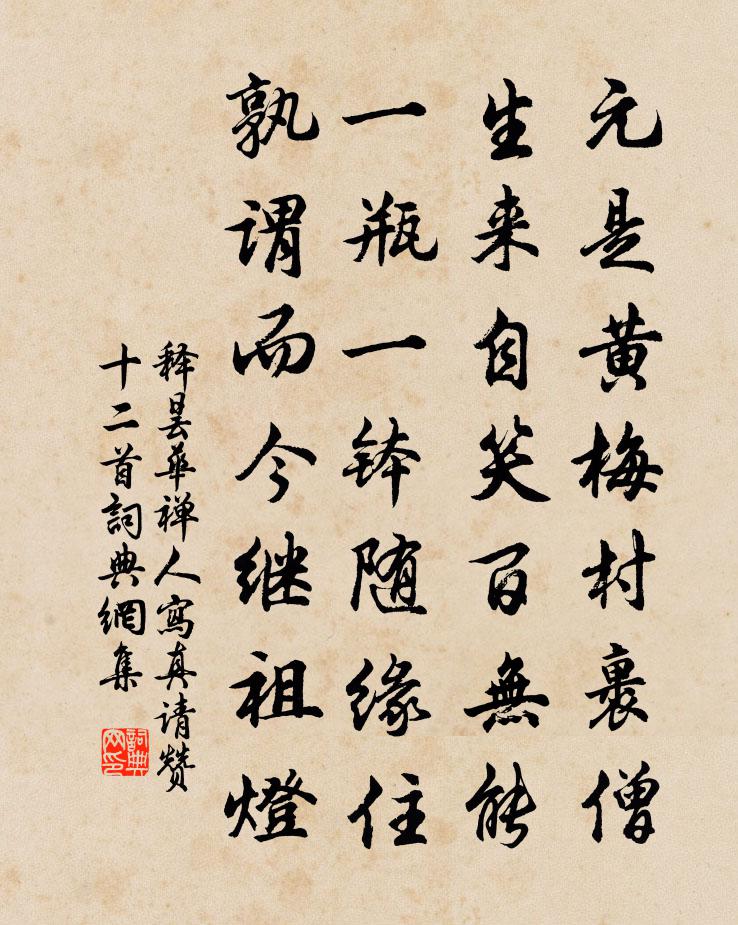 元是黄梅村裏僧
生来自笑百無能
一瓶一钵随缘住
孰谓而今继祖燈
释曇華禅人寫真请赞
十二首詞典網集
詞典
网印